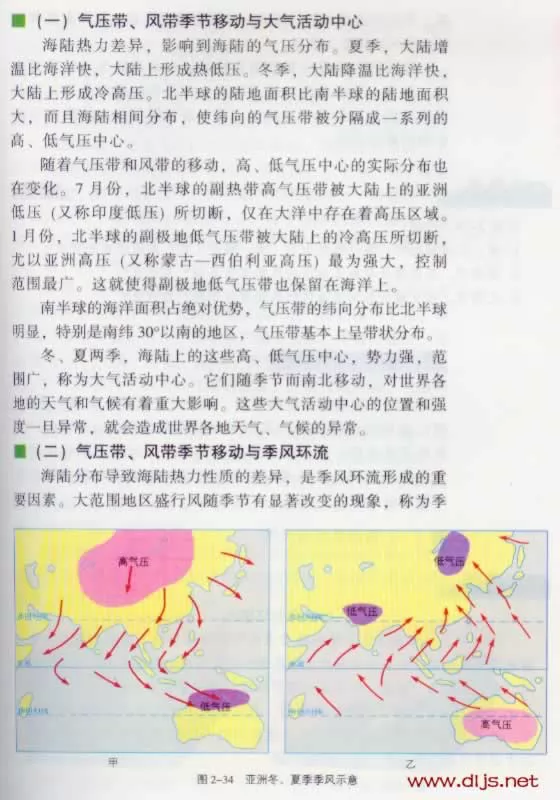 （一）气压带、风带季节移动与大气活动中心
海陆热力差异，影响到海陆的气压分布。夏季，大陆增
温比海洋快，大陆上形成热低压。冬季，大陆降温比海洋快，
大陆上形成冷高压。北半球的陆地面积比南半球的陆地面积
大，而且海陆相间分布，使纬向的气压带被分隔成一系列的
高、低气压中心。
随着气压带和风带的移动，高、低气压中心的实际分布也
在变化。7月份，北半球的副热带高气压带被大陆上的亚洲
低压（又称印度低压）所切断，仅在大洋中存在着高压区域。
1月份，北半球的副极地低气压带被大陆上的冷高压所切断，
尤以亚洲高压（又称蒙古—西伯利亚高压）最为强大，控制
范围最广。这就使得副极地低气压带也保留在海洋上。
南半球的海洋面积占绝对优势，气压带的纬向分布比北半球
明显，特别是南纬30°以南的地区，气压带基本上呈带状分布。
冬、夏两季，海陆上的这些高、低气压中心，势力强，范
围广，称为大气活动中心。它们随季节而南北移动，对世界各
地的天气和气候有着重大影响。这些大气活动中心的位置和强
度一旦异常，就会造成世界各地天气、气候的异常。
（二）气压带、风带季节移动与季风环流
海陆分布导致海陆热力性质的差异，是季风环流形成的重
要因素。大范围地区盛行风随季节有显著改变的现象，称为季
高气压
低气压
甲
低气压
低气压
高气压
乙
图2-34 亚洲冬、夏季季风示意
www.dljs.net